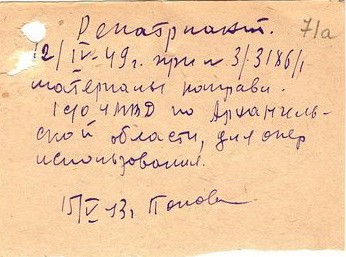 Репатриант.
71а
12/IV-49г. при № 3/3186/1
материалы направл.
1 УМВД по Архангель-
ской области, для опер
использования.
15/V 53г Попова